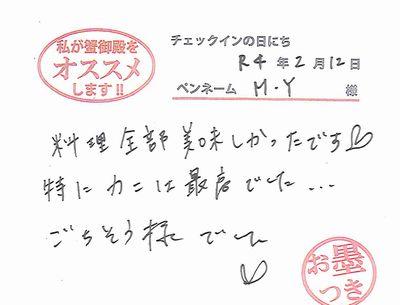 私が蟹御殿を
オススメ
します!!
チェックインの日にち
R4 年 2 月 12 日
ペンネーム M・Y 様
料理全部美味しかったです♡
特にカニは最高でした…
ごちそう様でした
♡
お墨
つき